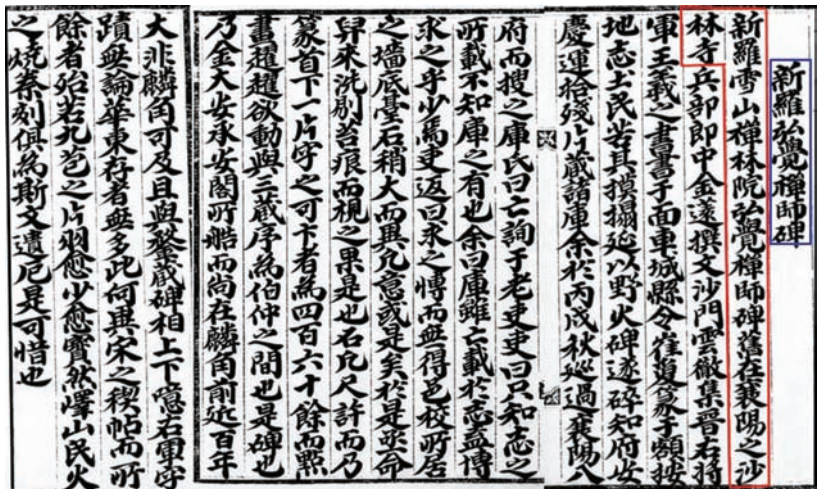 新羅弘覺禪師碑
新羅雪山禪林院弘覺禪師碑舊在襄陽之沙
林寺兵部郎中金薳撰文沙門雲徹集晉右將
軍王羲之書書于面車城縣令崔瓊篆于額按
地志士民苦其摸搨延以野火碑遂碎知府安
慶運拾殘片藏諸庫余於丙戌秋廵過襄陽入
府而搜之庫氏曰亡詢于老吏吏曰只知志之
所載不知庫之有也余曰庫雖亡載於志盍博
求之乎少焉吏返曰求之愽而無得邑校所居
之墻底臺石稍大而異凡意或是矣於是亟命
舁來洗剔苔痕而視之果是也石凡尺許而乃
篆首下一片字之可卞者爲四百六十餘而點
畫趯趯欲動與三藏序爲伯仲之間也是碑也
乃金大安承安閣所而尚在麟角前近百年
大非麟角可及且與鍪藏碑相上下噫右軍字
蹟無論華東存者無多此何異宋之稧帖而所
餘者殆若九苞之片羽愈少愈寶然嶧山民火
之燒刻俱爲斯文遺厄是可惜也